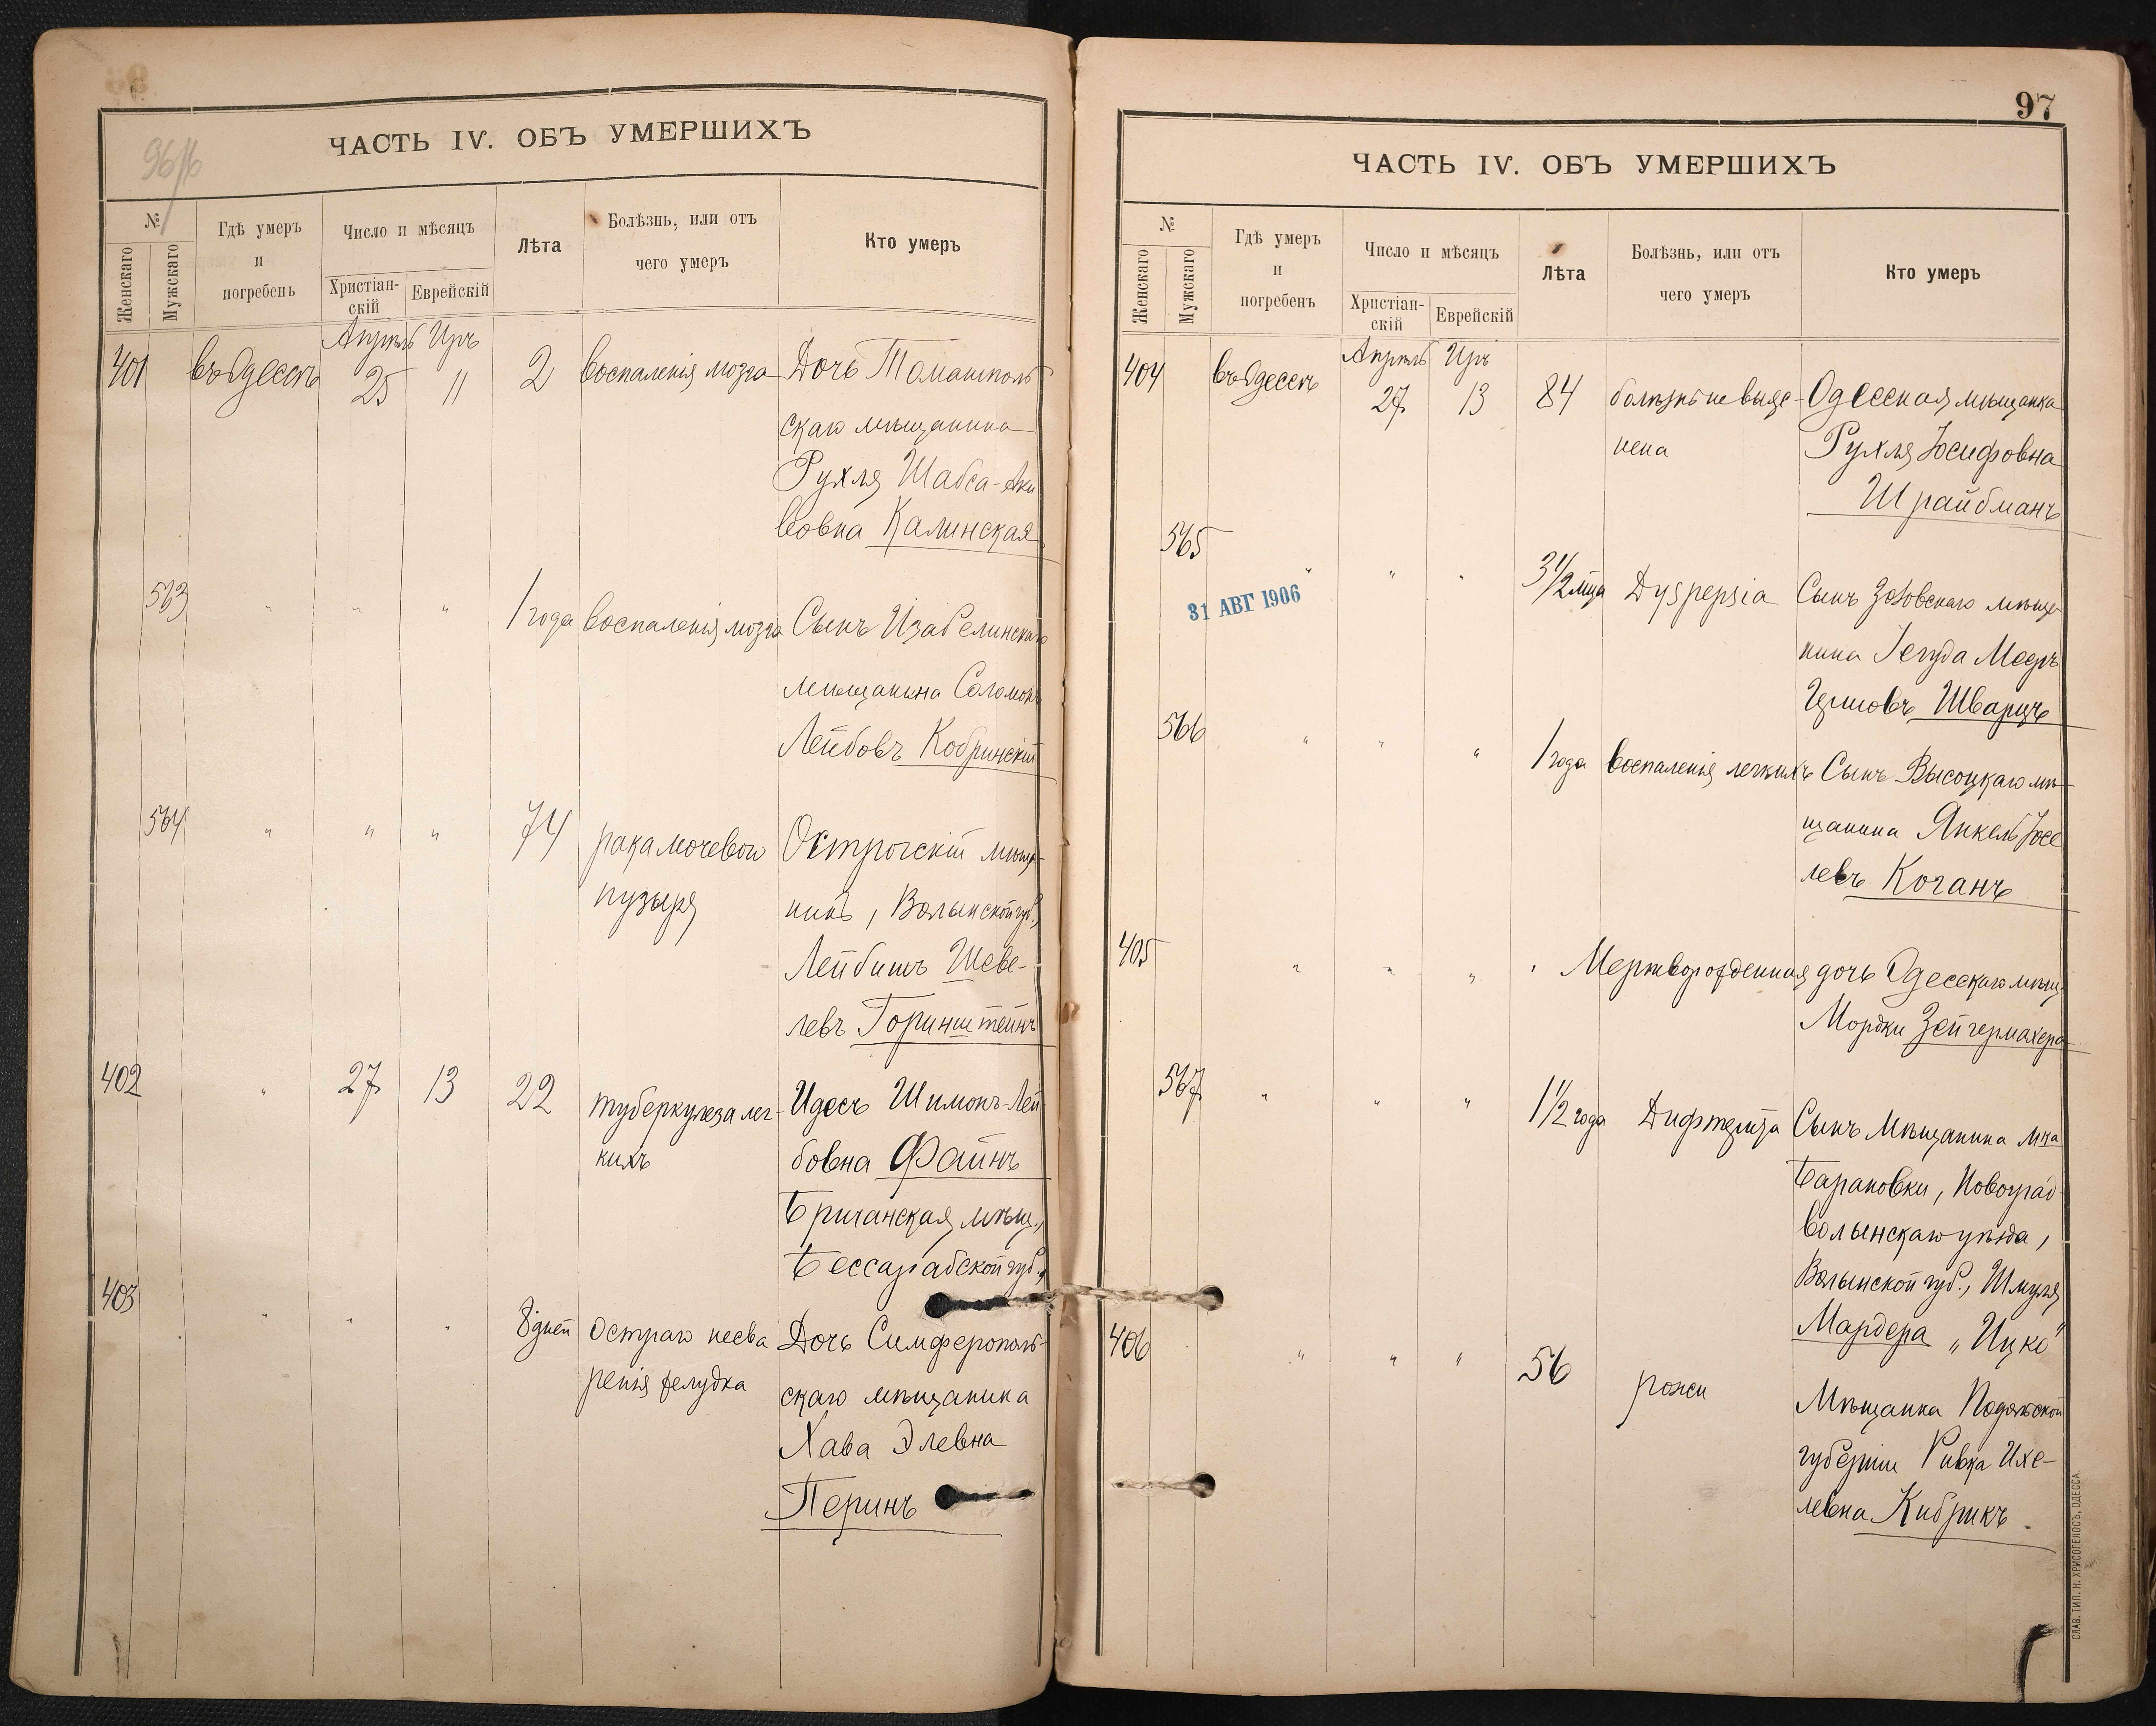 96
ЧАСТЬ IV. ОБЪ УМЕРШИХЪ
№
Женскаго
Мужскаго
Гдѣ умеръ
и
погребенъ
Число и мѣсяцъ
Христіан-
скій
Еврейскій
Лѣта
Болѣзнь, или отъ
чего умеръ
Кто умеръ
401 въ Одессѣ Апрѣль 25 Иръ 11 2 воспаленія мозга Дочь Томашполь
скаго мѣщанина
Рухля Шабса-Аки
вовна Калинская
563 " " " 1 года воспаленія мозга Сынъ Изабелинскаго
мѣщанина Соломонъ
Лейбовъ Кобринскій
564 " " " 74 рака мочевого Острогскій мѣща-
пузыря нинъ, Волынской губ.,
Лейбишъ Шеве-
левъ Горинштейнъ
402 " 27 13 22 туберкулеза лег- Идесъ Шимонъ-Лей-
кихъ бовна Файнъ
Бричанская мѣщ.,
Бессарабской губ.,
403 " " " 8 дней остраго несва Дочь Симферополь-
ренія желудка скаго мѣщанина
Хава Элевна
Перинъ
97
ЧАСТЬ IV. ОБЪ УМЕРШИХЪ
№
Женскаго
Мужскаго
Гдѣ умеръ
и
погребенъ
Число и мѣсяцъ
Христіан-
скій
Еврейскій
Лѣта
Болѣзнь, или отъ
чего умеръ
Кто умеръ
404 въ Одессѣ Апрѣль 27 Иръ 13 84 болѣзнь не выяс- Одесская мѣщанка
нена Рухля Іосифовна
Шрайбманъ
565 " " " 3 1/2 мѣца Dyspepsia Сынъ мѣща-
31 АВГ 1906
нина Іегуда Мееръ
Гершовъ Шварцъ
566 " " " 1 года воспаленія легкихъ Сынъ Высоцкаго мѣ-
щанина Янкель Іосе
левъ Коганъ
405 " " " " Мертворожденная дочь Одесскаго мѣщ.
Мордки Зейгермахера
567 " " " 1 1/2 года Дифтерита Сынъ мѣщанина м-ка
Барановки, Новоград-
волынскаго уѣзда,
Волынской губ., Шмуля
Мардера „Ицко"
406 " " " 56 рожи Мѣщанка Подольской
губерніи Ривка Ихе-
левна Кибрикъ.
СЛАВ. ТИП. Н. ХРИСОГЕЛОСЪ, ОДЕССА.